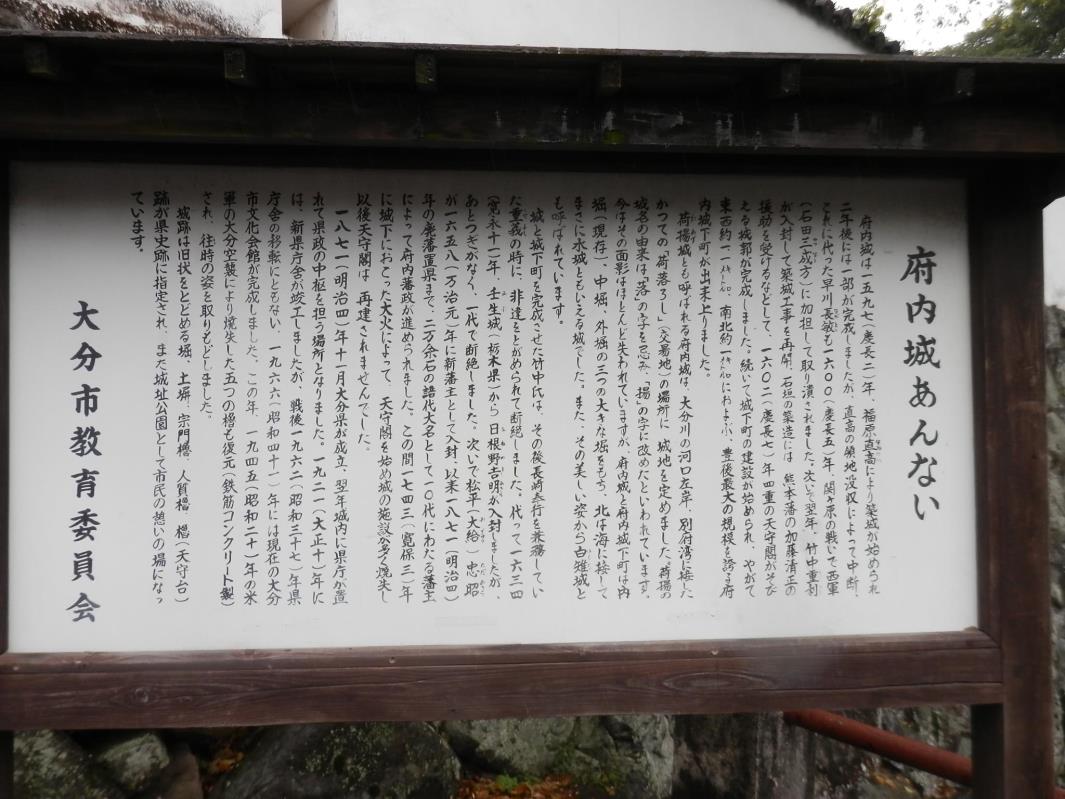 府内城あんない
府内城は一五九七(慶長二)年、福原直高により築城が始められ
二年後には一部が完成しましたが、直高の領地没収によって中断、
これに代った早川長敏も一六〇〇(慶長五)年、関ヶ原の戦いで西軍
(石田三成方)に加担して取り潰されました。次いで翌年、竹中重利
が入封して築城工事を再開、石垣の築造には、熊本藩の加藤清正の
援助を受けるなどして、一六〇二(慶長七)年四重の天守閣がそび
える城郭が完成しました。続いて城下町の建設が始められ、やがて
東西約一・一キロ、南北約一キロにおよぶ、豊後最大の規模を誇る府
内城下町が出来上りました。
荷揚城とも呼ばれる府内城は、大分川の河口左岸、別府湾に接した
かつての「荷落ろし」(交易地)の場所に、城地を定めました。荷揚の
城名の由来は「落」の字を忌み、「揚」の字に改めたといわれています。
今はその面影はほとんど失われていますが、府内城と府内城下町は内
堀(現存)、中堀、外堀の三つの大きな堀をもち、北は海に接して
まさに水城ともいえる城でした。また、その美しい姿から白雉城と
も呼ばれています。
城と城下町を完成させた竹中氏は、その後長崎奉行を兼務してい
た重義の時に、非違をとがめられて断絶しました。代って一六三四
(寛永十一)年、壬生城(栃木県)から日根野吉明が入封しましたが、
あとつぎがなく、一代で断絶しました。次いで松平(大給)忠昭
が一六五八(万治元)年に新藩主として入封、以来一八七一(明治四)
年の廃藩置県まで、二万余石の譜代大名として一〇代にわたる藩主
によって府内藩政が進められました。この間一七四三(寛保三)年
に城下におこった大火によって、天守閣を始め城の施設が多く焼失し
以後天守閣は、再建されませんでした。
一八七一(明治四)年十一月大分県が成立、翌年城内に県庁が置
かれて県政の中枢を担う場所となりました。一九二一(大正十)年に
は、新県庁舎が竣工しましたが、戦後一九六二(昭和三十七)年県
庁舎の移転にともない、一九六六(昭和四十一)年には現在の大分
市文化会館が完成しました。この年、一九四五(昭和二十)年の米
軍の大分空襲により焼失した五つの櫓も復元(鉄筋コンクリート製)
され、往時の姿を取りもどしました。
城跡は旧状をとどめる堀、土塀、宗門櫓、人質櫓、櫓(天守台)
跡が県史跡に指定され、また城址公園として市民の憩いの場になっ
ています。
大分市教育委員会